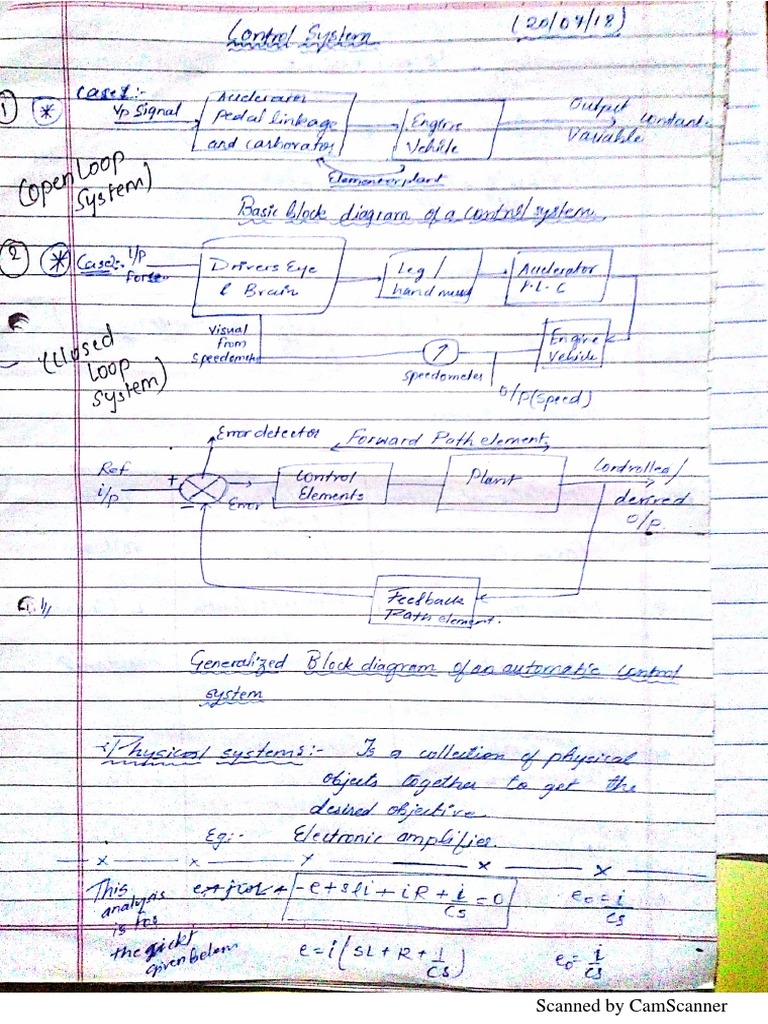 Control System (20/07/18)
Case1:-
1 * i/p signal Accelerator Output constant.
pedal linkage Engine Variable
and carborator Vehicle
Element or plant
(open Loop
System)
Basic block diagram of a control system.
2 * Case2:- i/p Drivers Eye Leg / Accelerator
Force & Brain hand P.L.C
Visual Engine
from Vehicle
Speedometer
(Closed speedometer
Loop O/P (speed)
System)
Error detector Forward Path element
Ref + Control Plant Controlled /
i/p - Error Elements desired
O/p.
Feedback
Path element.
Generalized Block diagram of an automatic control
system
Physical systems:- Is a collection of physical
objects together to get the
desired objective.
Eg:- Electronic amplifier.
x x x x
This -e+sLi+iR+i/Cs=0 e₀=i/Cs
analysis
is for
the
given below e=i(SL+R+1/CS) e₀=i/Cs
Scanned by CamScanner